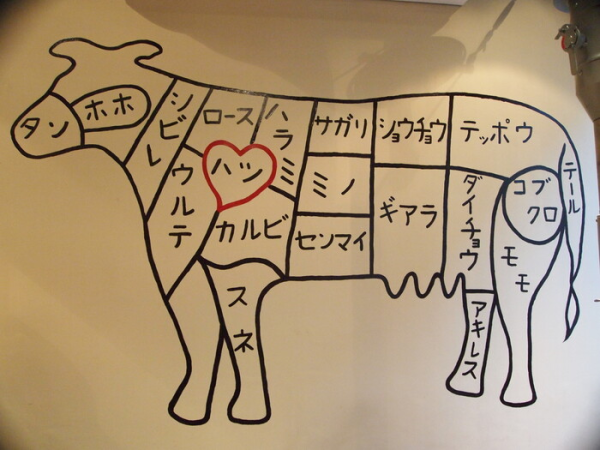 タン
ホホ
シビレ
ウルテ
ロース
ハラミ
ハツ
カルビ
サガリ
ミノ
センマイ
ショウチョウ
ギアラ
テッポウ
ダイチョウ
コブ
クロ
テール
モモ
スネ
アキレス